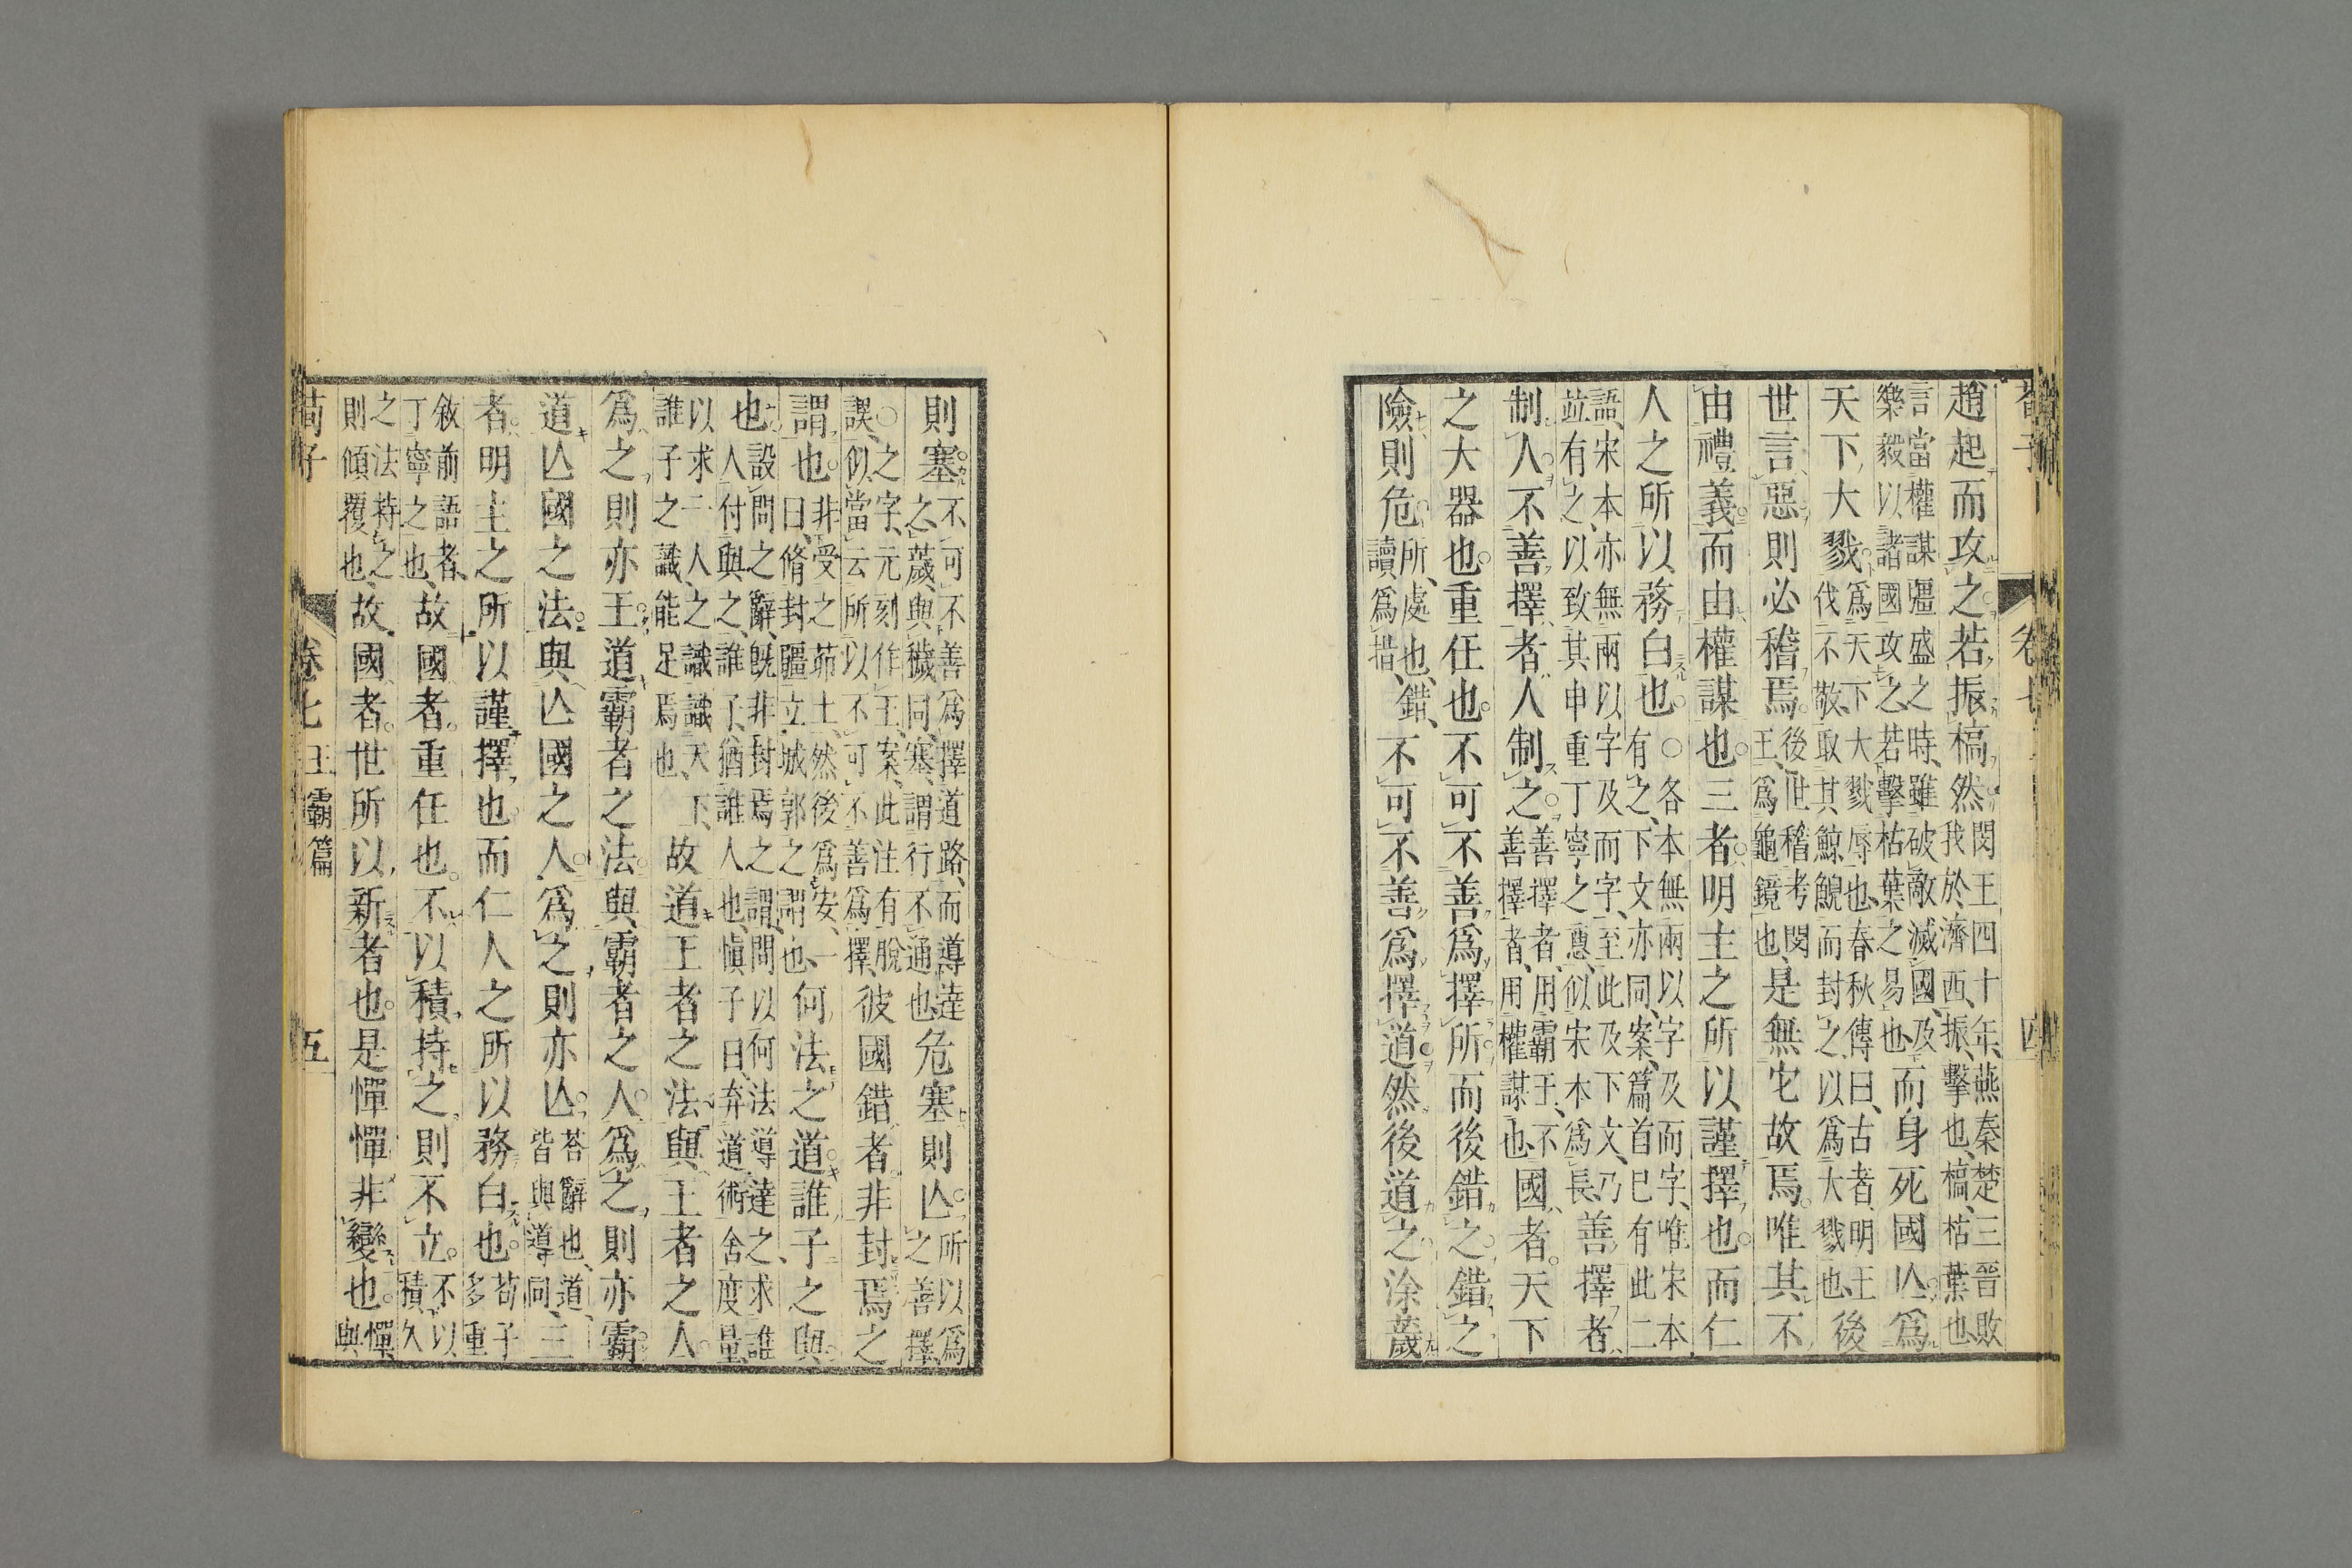 趙起而攻之若振槁然閔王四十年燕秦楚三晉敗我於濟西振擊也槁枯葉也
言當權謀彊盛之時雖破敵滅國及樂毅以諸國攻之若擊枯葉之易也而身死國亾爲
天下大戮爲天下大戮辱也春秋傳曰古者明王伐不敬取其鯨鯢而封之以爲大戮也後
世言惡則必稽焉後世稽考閔王爲龜鏡也是無它故焉唯其不
由禮義而由權謀也三者明主之所以謹擇也而仁
人之所以務白也○各本無兩以字及而字唯宋本有之下文亦同案篇首已有此二
語宋本亦無兩以字及而字至此及下文乃竝有之以致其申重丁寧之意似宋本爲長善擇者
制人不善擇者人制之善擇者用霸王不善擇者用權謀也國者天下
之大器也重任也不可不善爲擇所而後錯之錯之
險則危所處也錯讀爲措不可不善爲擇道然後道之涂薉
則塞不可不善爲擇道路而導達之薉與穢同塞謂行不通也危塞則亾所以爲之善擇
○之字元刻作王案此注有脫誤似當云所以不可不善爲擇彼國錯者非封焉之
謂也非受之茆土然後爲安一曰脩封疆立城郭之謂也何法之道誰子之與
也設問之辭旣非封焉之謂問以何法導達之求誰人付與之誰子猶誰人也愼子曰弃道術舍度量
以求一人之識識天下誰子之識能足焉也故道王者之法與王者之人
爲之則亦王道霸者之法與霸者之人爲之則亦霸
道亾國之法與亾國之人爲之則亦亾荅辭也道皆與導同三
者明主之所以謹擇也而仁人之所以務白也荀子多重
敘前語者丁寧之也故國者重任也不以積持之則不立不以積久
之法持之則傾覆也故國者世所以新者也是憚憚非變也憚與
荀子
卷七
王霸篇
五